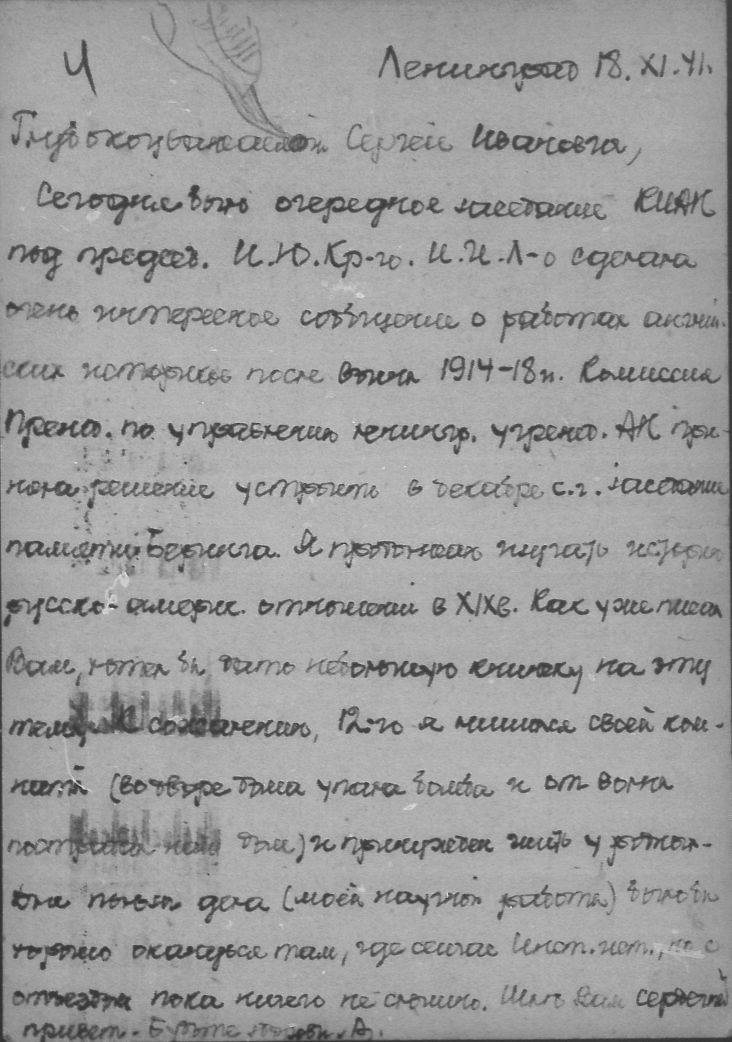 4
Ленинград 18.XI.41.
Глубокоуважаемый Сергей Иванович,
Сегодня было очередное заседание КИАН
под председ. И.Ю.Кр-го. И.И.Л-о сделала
очень интересное сообщение о работах англий-
ских историков после войны 1914-18 гг. Комиссия
Презид. по управлению ленингр. учрежд. АН при-
няла решение устроить в декабре с.г. заседание
памяти Беринга. Я продолжаю изучать историю
русско-америк. отношений в XIXв. Как уже писал
Вам, хотел бы дать небольшую книжку на эту
тему. К сожалению, 12-го я лишился своей ком-
наты (во дворе дома упала бомба и от волны
пострадал наш дом) и принужден жить у родных.
Для пользы дела (моей научной работы) было бы
хорошо оказаться там, где сейчас Инст. ист., но о
отъезде пока ничего не слышно. Шлю Вам сердечный
привет. Будьте здоровы. А.